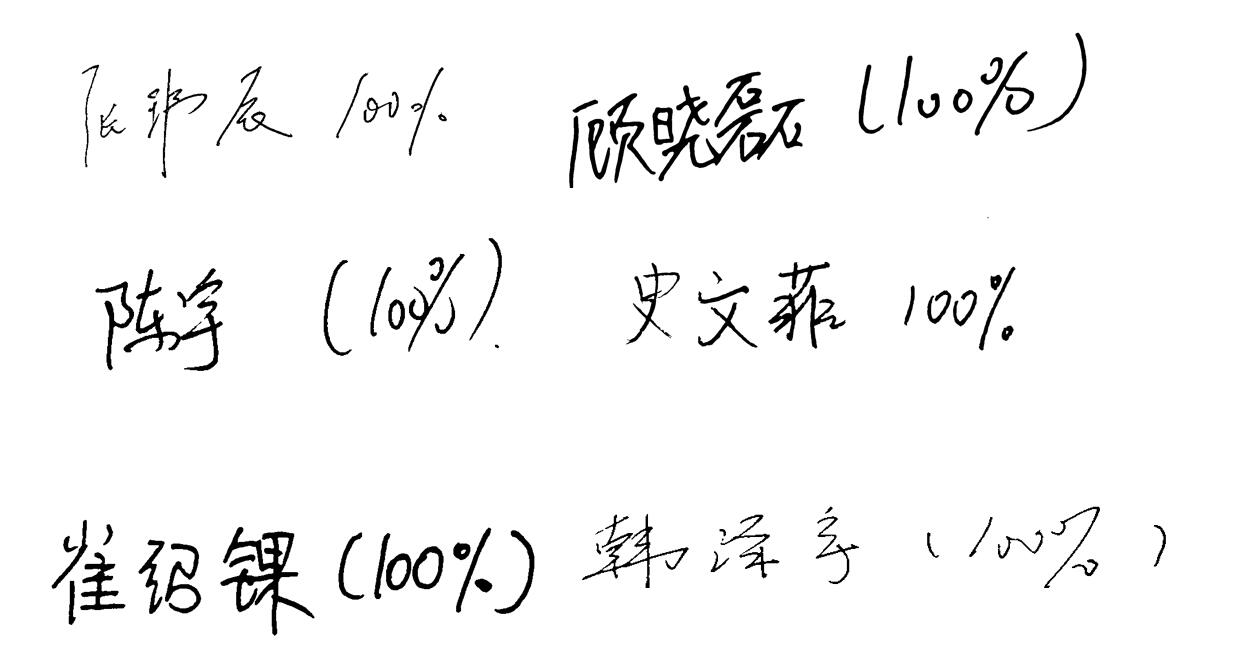 张玮辰 100% 顾晓磊 (100%)
陈宇 (100%) 史文菲 100%
崔绍锞 (100%) 韩泽宇 (100%)